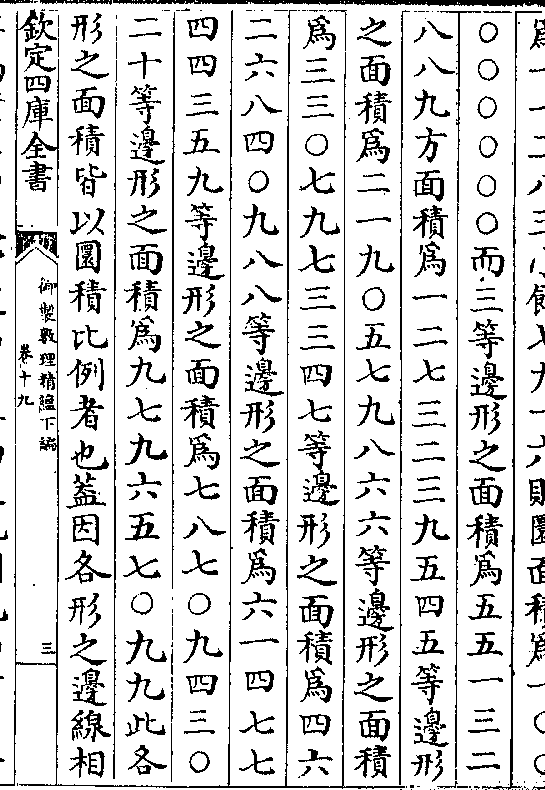 爲一一二八三小餘七九一六則圜面積爲一〇〇
〇〇〇〇〇〇而三等邊形之面積爲五五一三二
八八九方面積爲一二七三二三九五四五等邊形
之面積爲二一九〇五七九八六六等邊形之面積
爲三三〇七九七三三四七等邊形之面積爲四六
二六八四〇九八八等邊形之面積爲六一四七七
四四三五九等邊形之面積爲七八七〇九四三〇
二十等邊形之面積爲九七九六五七〇九九此各
形之面積皆以圜積比例者也蓋因各形之邊線相
欽定四庫全書
御製數理精蘊下編
卷十九
三